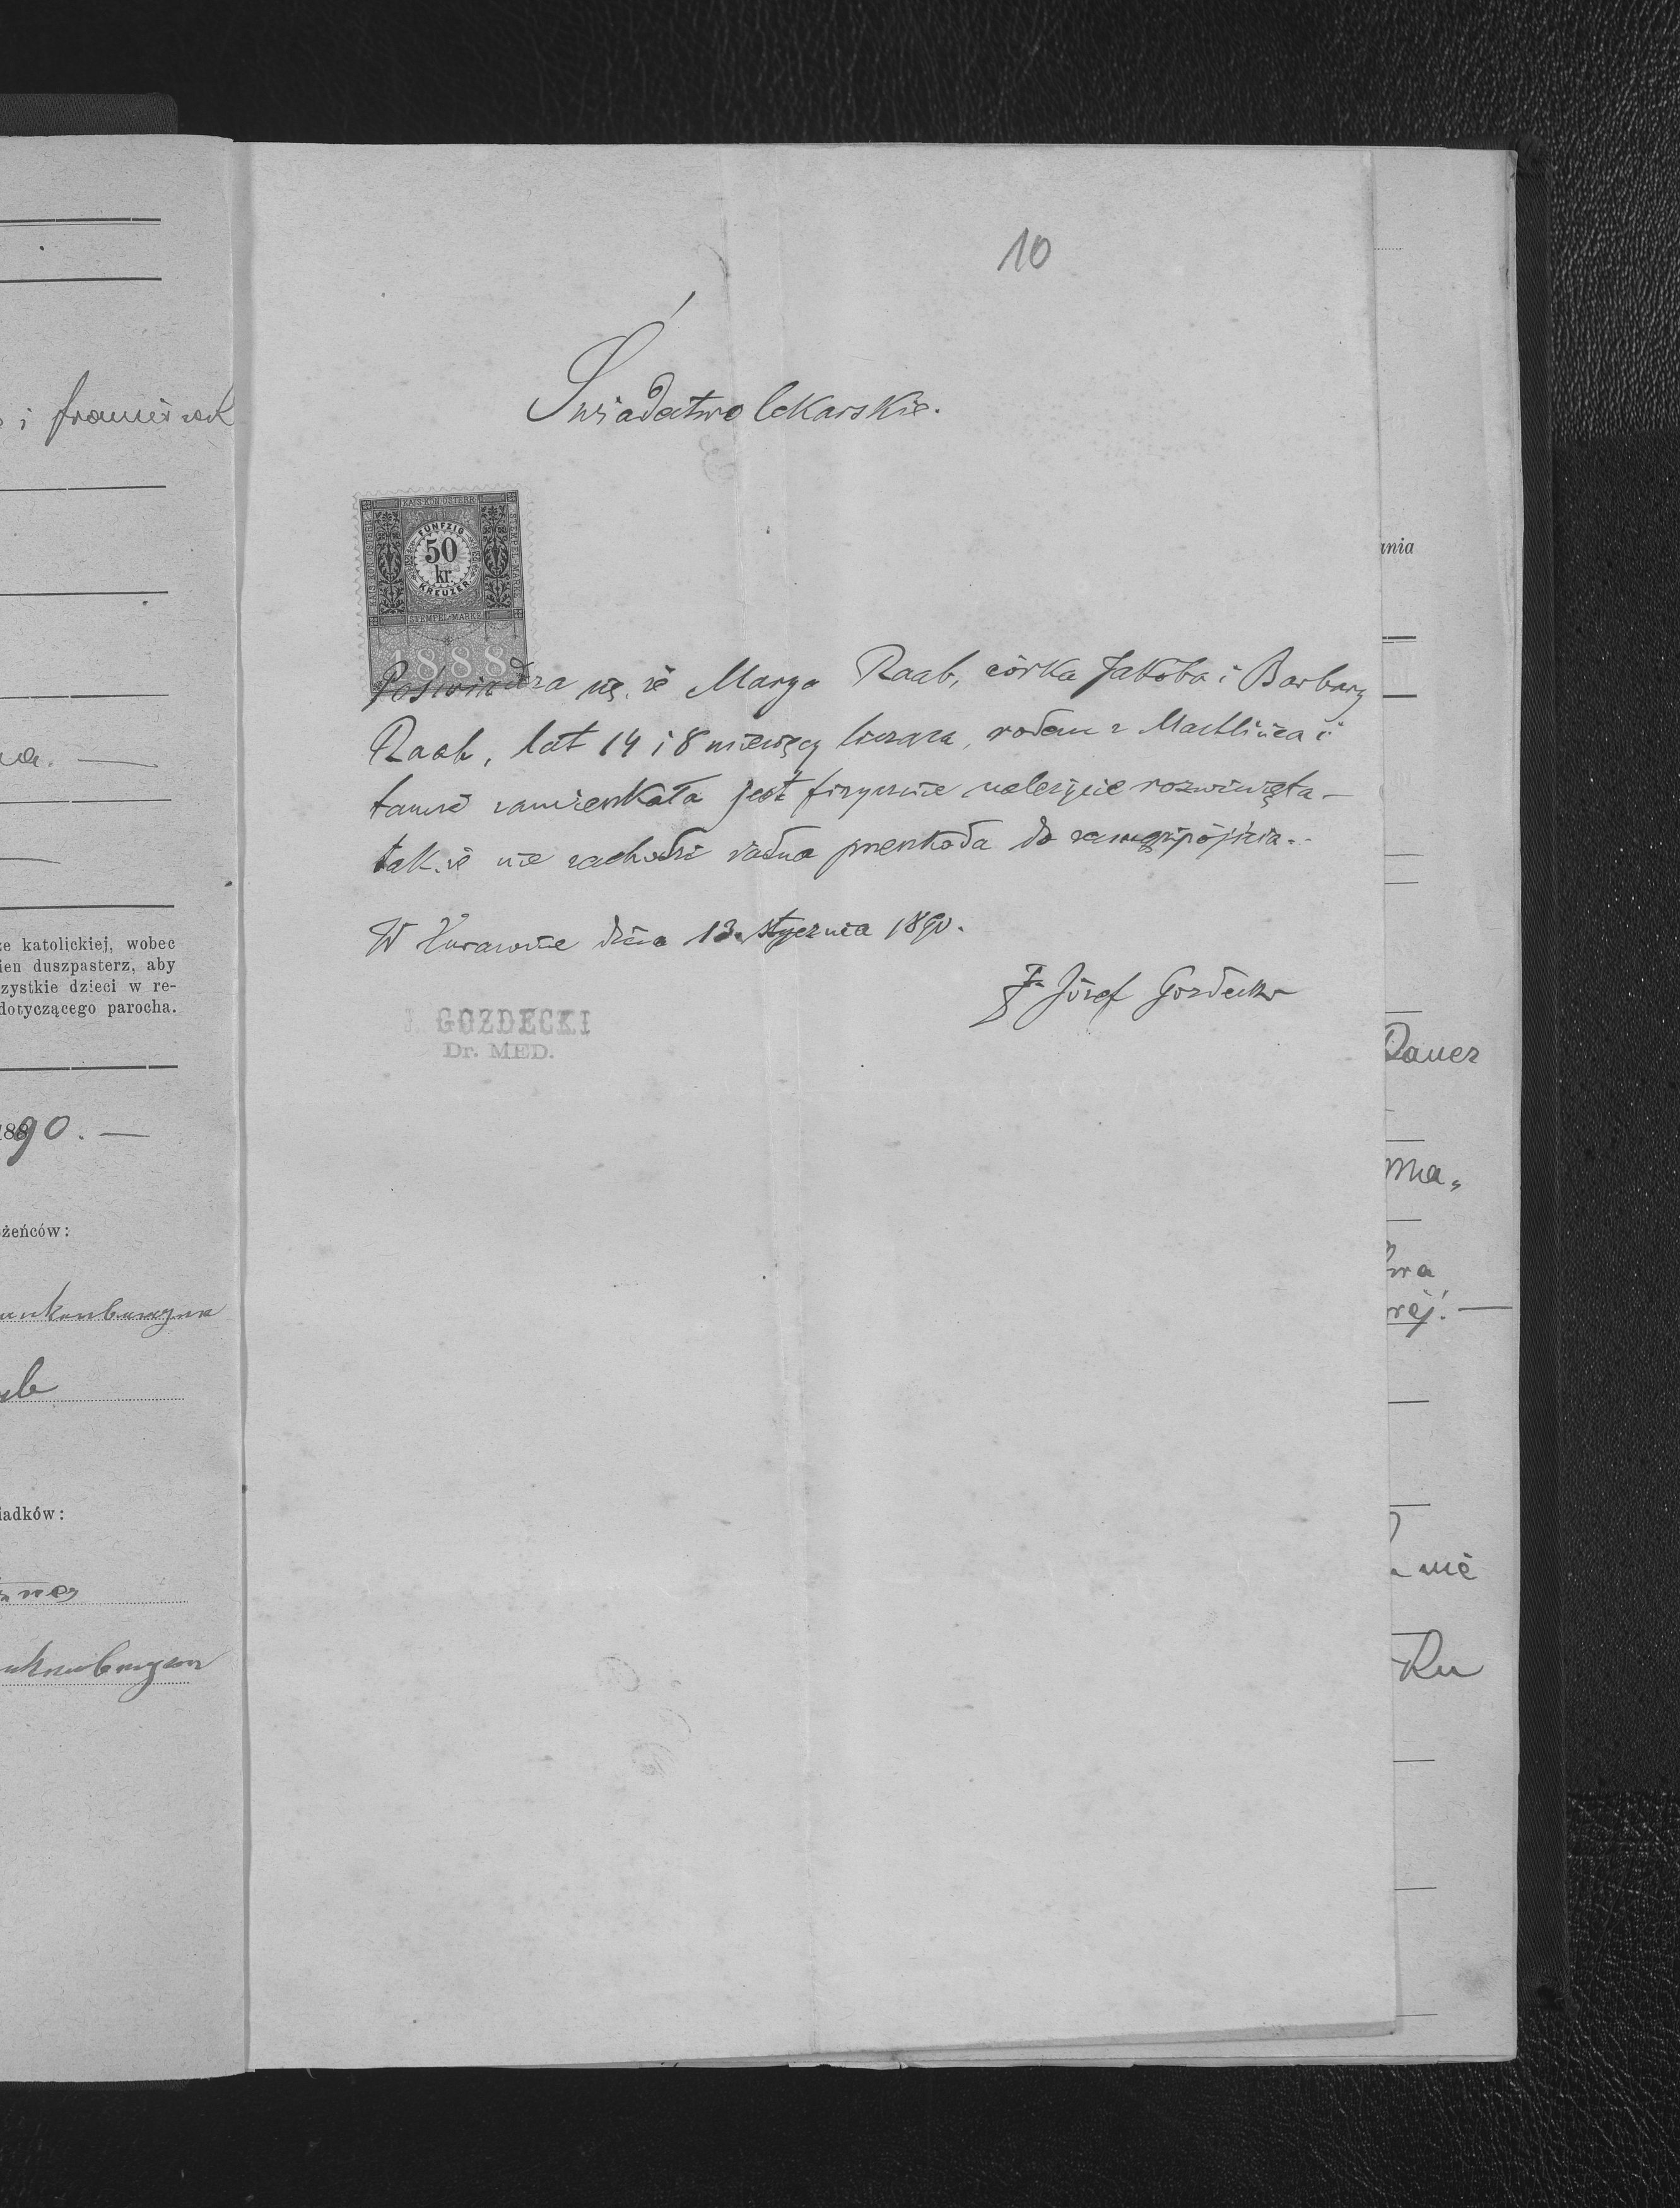 10
Świadectwo lekarskie.
KAIS. KÖN. ÖSTERR.
STEMPEL-MARKE
FÜNFZIG
50
kr.
KREUZER
STEMPEL-MARKE
1888
Poświadcza się, że Marya Raab, córka Jakóba i Barbary
Raab, lat 14 i 8 miesięcy licząca, rodem z Machlińca i
tamże zamieszkała jest fizycznie należycie rozwinięta –
tak że nie zachodzi żadna przeszkoda do zamążpójścia. –
W Żurawnie dnia 13. stycznia 1890.
Józef Gozdecki
J. GOZDECKI
Dr. MED.
i franciszek
ze katolickiej, wobec
ien duszpasterz, aby
zystkie dzieci w re-
dotyczącego parocha.
18890. —
żeńców:
iadków:
ania
Dauer
Ma„
nie
Ru